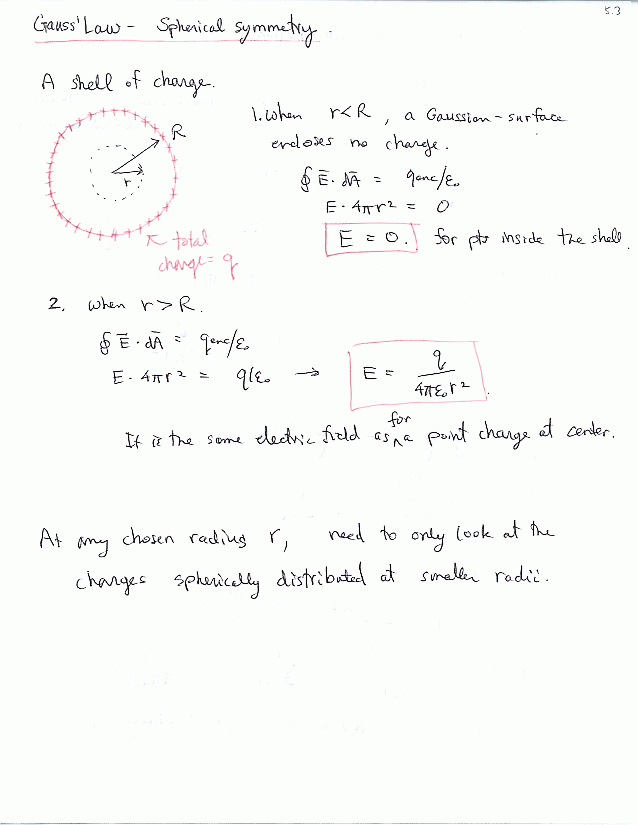 5.3
Gauss' Law - Spherical symmetry.
A shell of charge.
R
r
total
charge = q
1. When r<R, a Gaussian-surface
encloses no charge.
∮ E̅ · dA̅ = qenc/ε₀
E · 4πr² = 0
E = 0. for pts inside the shell.
2. when r > R.
∮ E̅ · dA̅ = qenc/ε₀
E · 4πr² = q/ε₀ → E = q / 4πε₀r².
It is the same electric field as for a point charge at center.
At any chosen radius r, need to only look at the
charges spherically distributed at smaller radii.